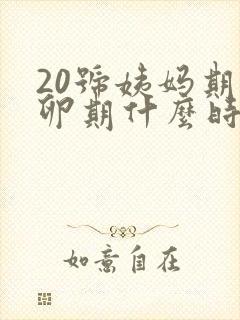 20號姨妈期
卵期什麼時
如意自在